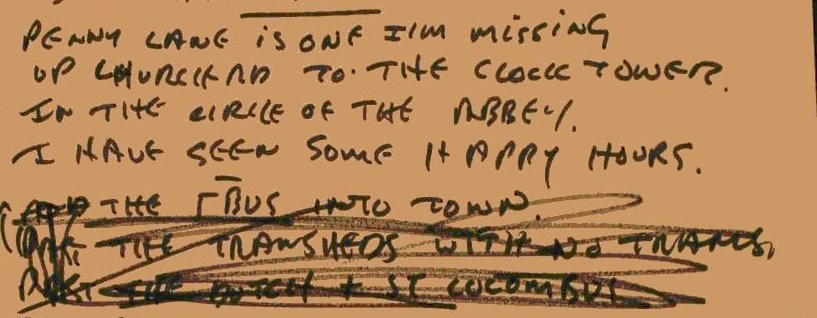 PENNY LANE IS ONE I'M MISSING
UP CHURCH RD TO THE CLOCK TOWER.
IN THE CIRCLE OF THE ABBEY.
I HAVE SEEN SOME HAPPY HOURS.
THE BUS INTO TOWN.
THE TRAMSHEDS WITH NO TRAMS,
PAST THE DUTCH + ST COLOMBUS